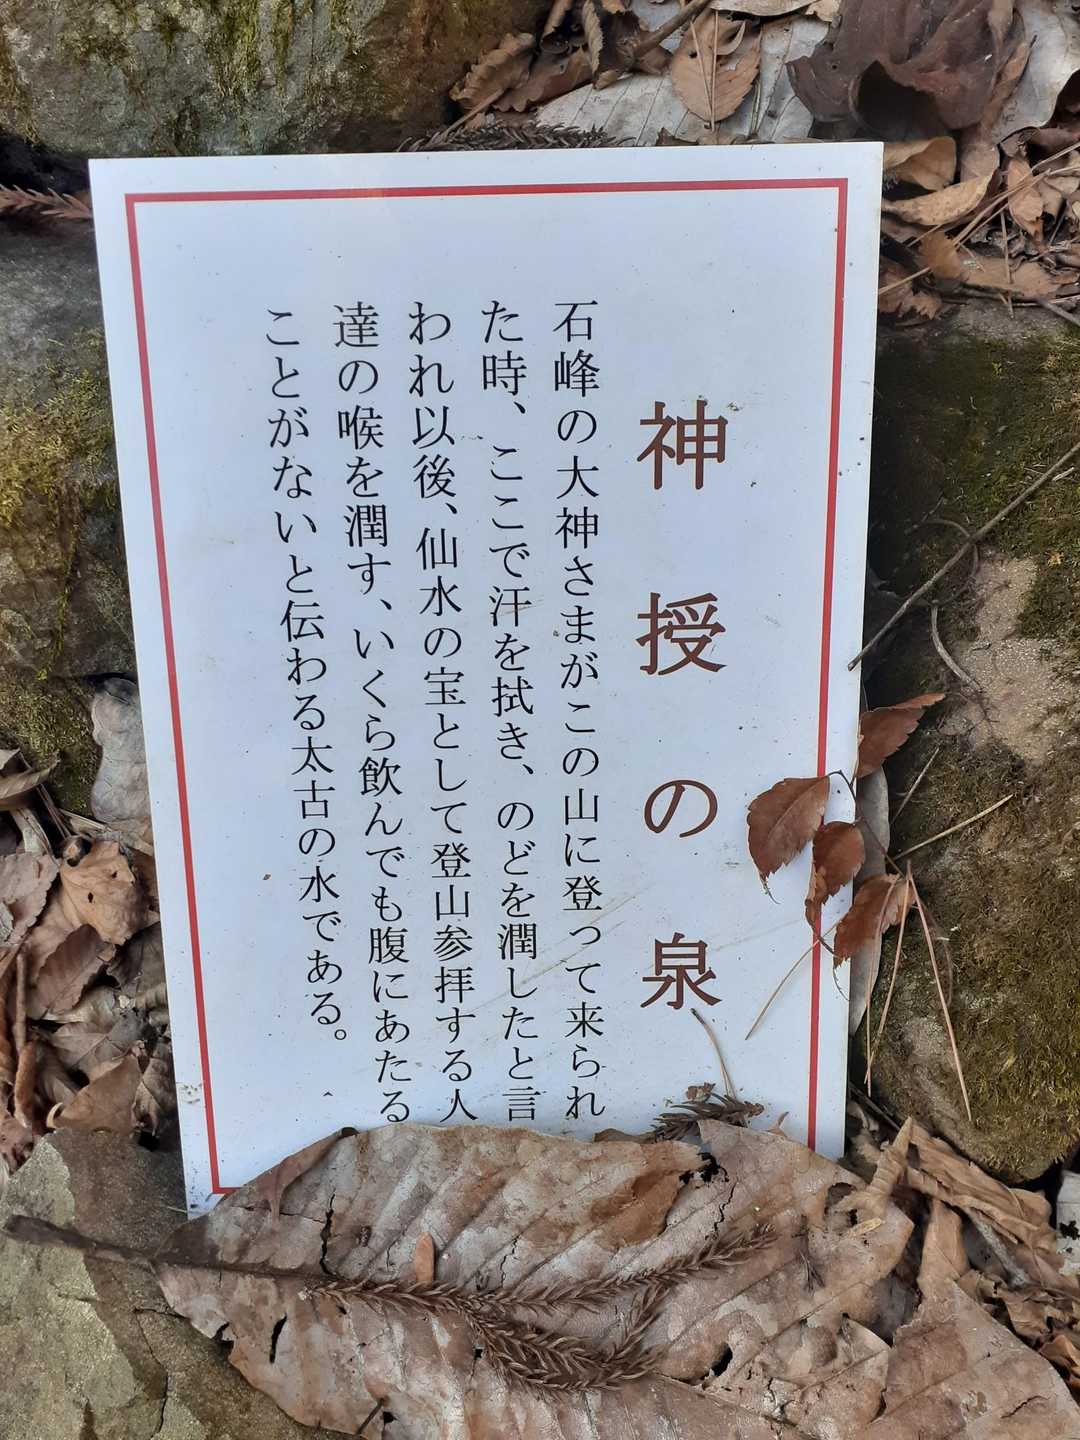 神授の泉
石峰の大神さまがこの山に登って来られ
た時、ここで汗を拭き、のどを潤したと言
われ以後、仙水の宝として登山参拝する人
達の喉を潤す、いくら飲んでも腹にあたる
ことがないと伝わる太古の水である。